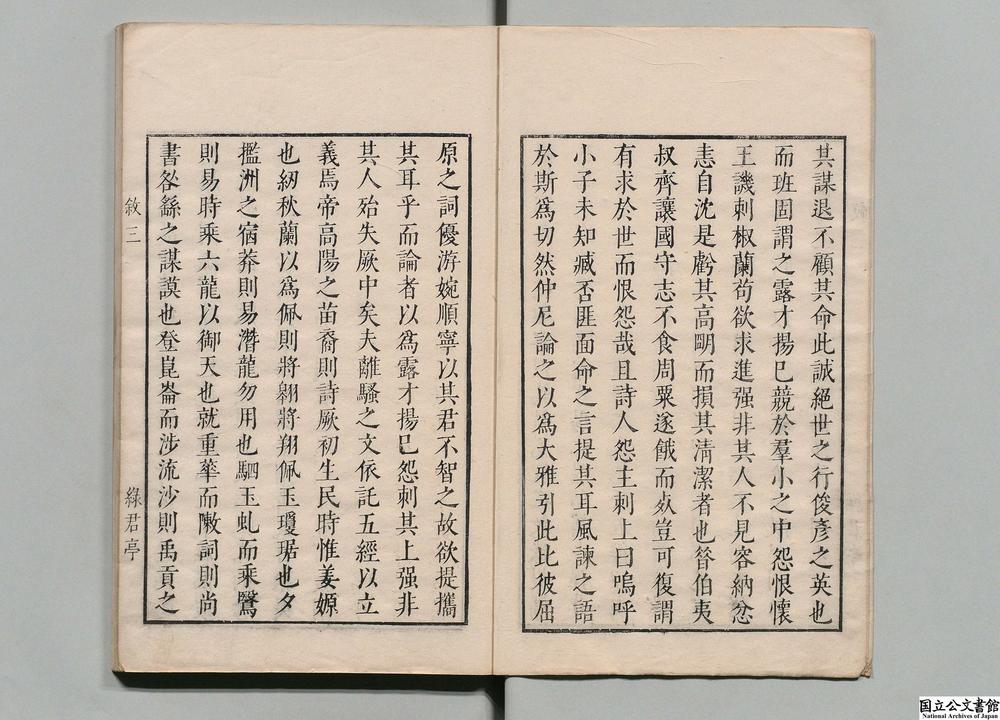 其謀退不顧其命此誠絕世之行俊彥之英也
而班固謂之露才揚已競於羣小之中怨恨懷
王譏刺椒蘭苟欲求進强非其人不見容納忿
恚自沈是虧其高明而損其清潔者也昝伯夷
叔齊讓國守志不食周粟遂餓而死豈可復謂
有求於世而恨怨哉且詩人怨主刺上曰嗚呼
小子未知臧否匪面命之言提其耳風諫之語
於斯爲切然仲尼論之以爲大雅引此比彼屈
原之詞優游婉順寧以其君不智之故欲提攜
其耳乎而論者以爲露才揚已怨刺其上强非
其人殆失厥中矣夫離騷之文依託五經以立
義焉帝高陽之苗裔則詩厥初生民時惟姜嫄
也紉秋蘭以爲佩則將翱將翔佩玉瓊琚也夕
擥洲之宿莽則易潛龍勿用也駟玉虬而乘鷖
則易時乘六龍以御天也就重華而敶詞則尚
書咎繇之謀謨也登崑崙而涉流沙則禹貢之
敘三
綠君亭
国立公文書館
National Archives of Japan